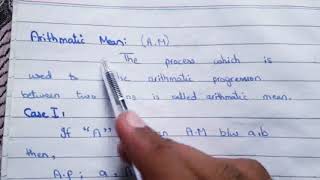 Arithmatic Mean: (A.M)
The process which is
used to the arithmatic progression
between two is called arithmatic mean.
Case I:
If "A" A.M b/w a,b
then,
A.P; a,